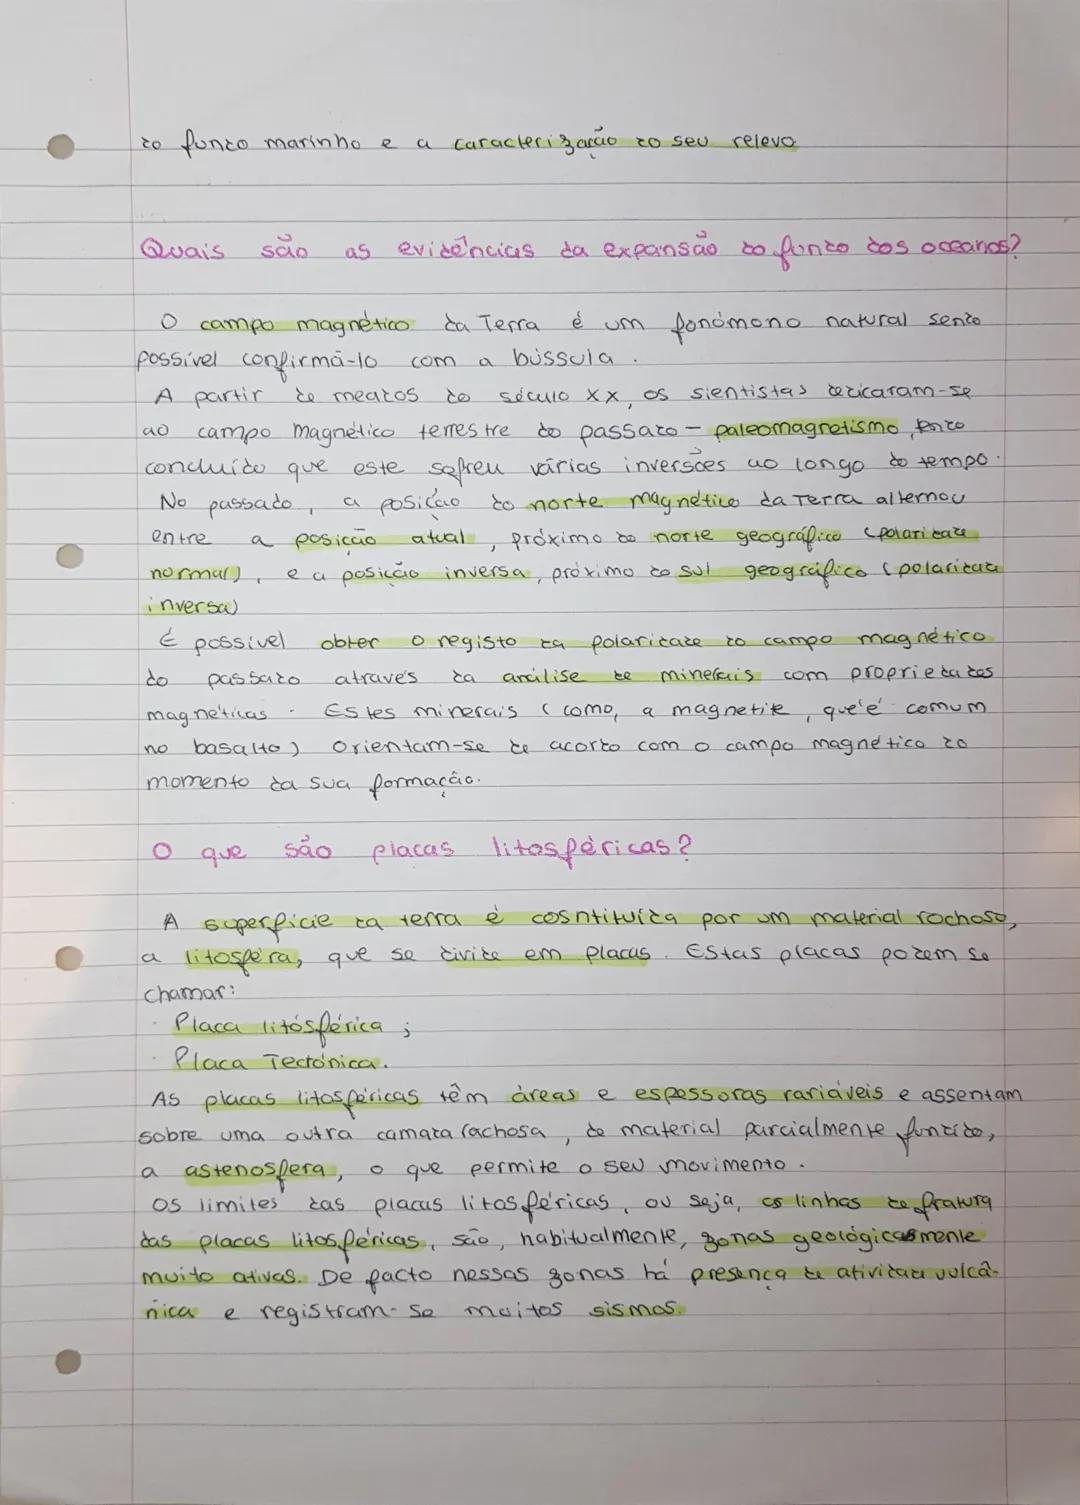 do fundo marinho e a caracterização do seu relevo
Quais são as evidências da expansão do fundo dos oceanos?
O campo magnético da Terra é um fonómono natural sendo
possível confirmá-lo com a bússula.
A partir de meados do século XX, os sientistas dedicaram-se
ao campo magnético terrestre do passado - paleomagnetismo, tendo
concluído que este sofreu várias inversões ao longo do tempo.
No passado, a posição do norte magnético da Terra alternou
entre a posição atual, próximo do norte geográfico (polaridade
normal), e a posição inversa, próximo do sul geográfico (polaridade
inversa)
É possível obter o registo da polaridade do campo magnético
do passado através da análise de minerais com propriedades
magnéticas. Estes minerais (como, a magnetite, que é comum
no basalto) orientam-se de acordo com o campo magnético do
momento da sua formação.
O que são placas litosféricas?
A superfície da terra é cosntituída por um material rochoso,
a litosfera, que se divide em placas. Estas placas podem se
chamar:
· Placa litósférica;
· Placa Tectónica.
As placas litosféricas têm áreas e espessoras rariáveis e assentam
sobre uma outra camada rachosa, de material parcialmente fundido,
a astenosfera, o que permite o seu movimento.
Os limites das placas litosféricas, ou seja, as linhas de fratura
das placas litosféricas, são, habitualmente, zonas geológicasmente
muito ativas. De facto nessas zonas há presença de atividade vulcâ-
nica e registram-se muitos sismos.